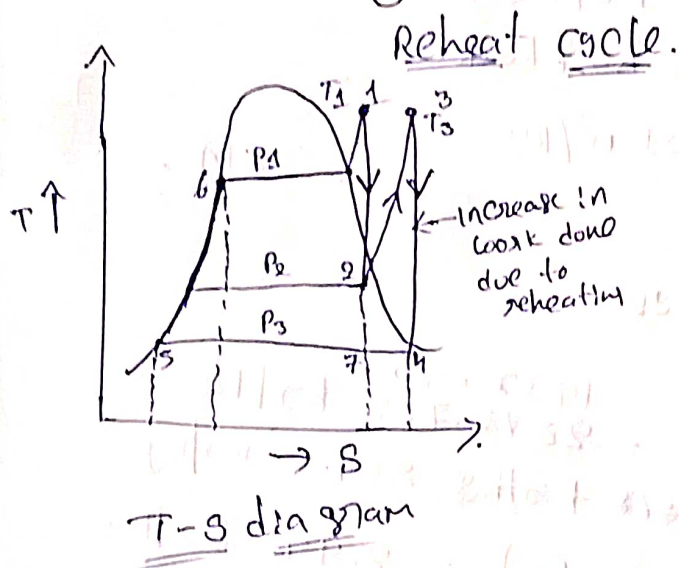 Reheat cycle.
T1 1 3
T3
P1
6
T↑
Increase in
work done
due to
reheating
P2 2
P3
5 7 4
→ S
T-s diagram